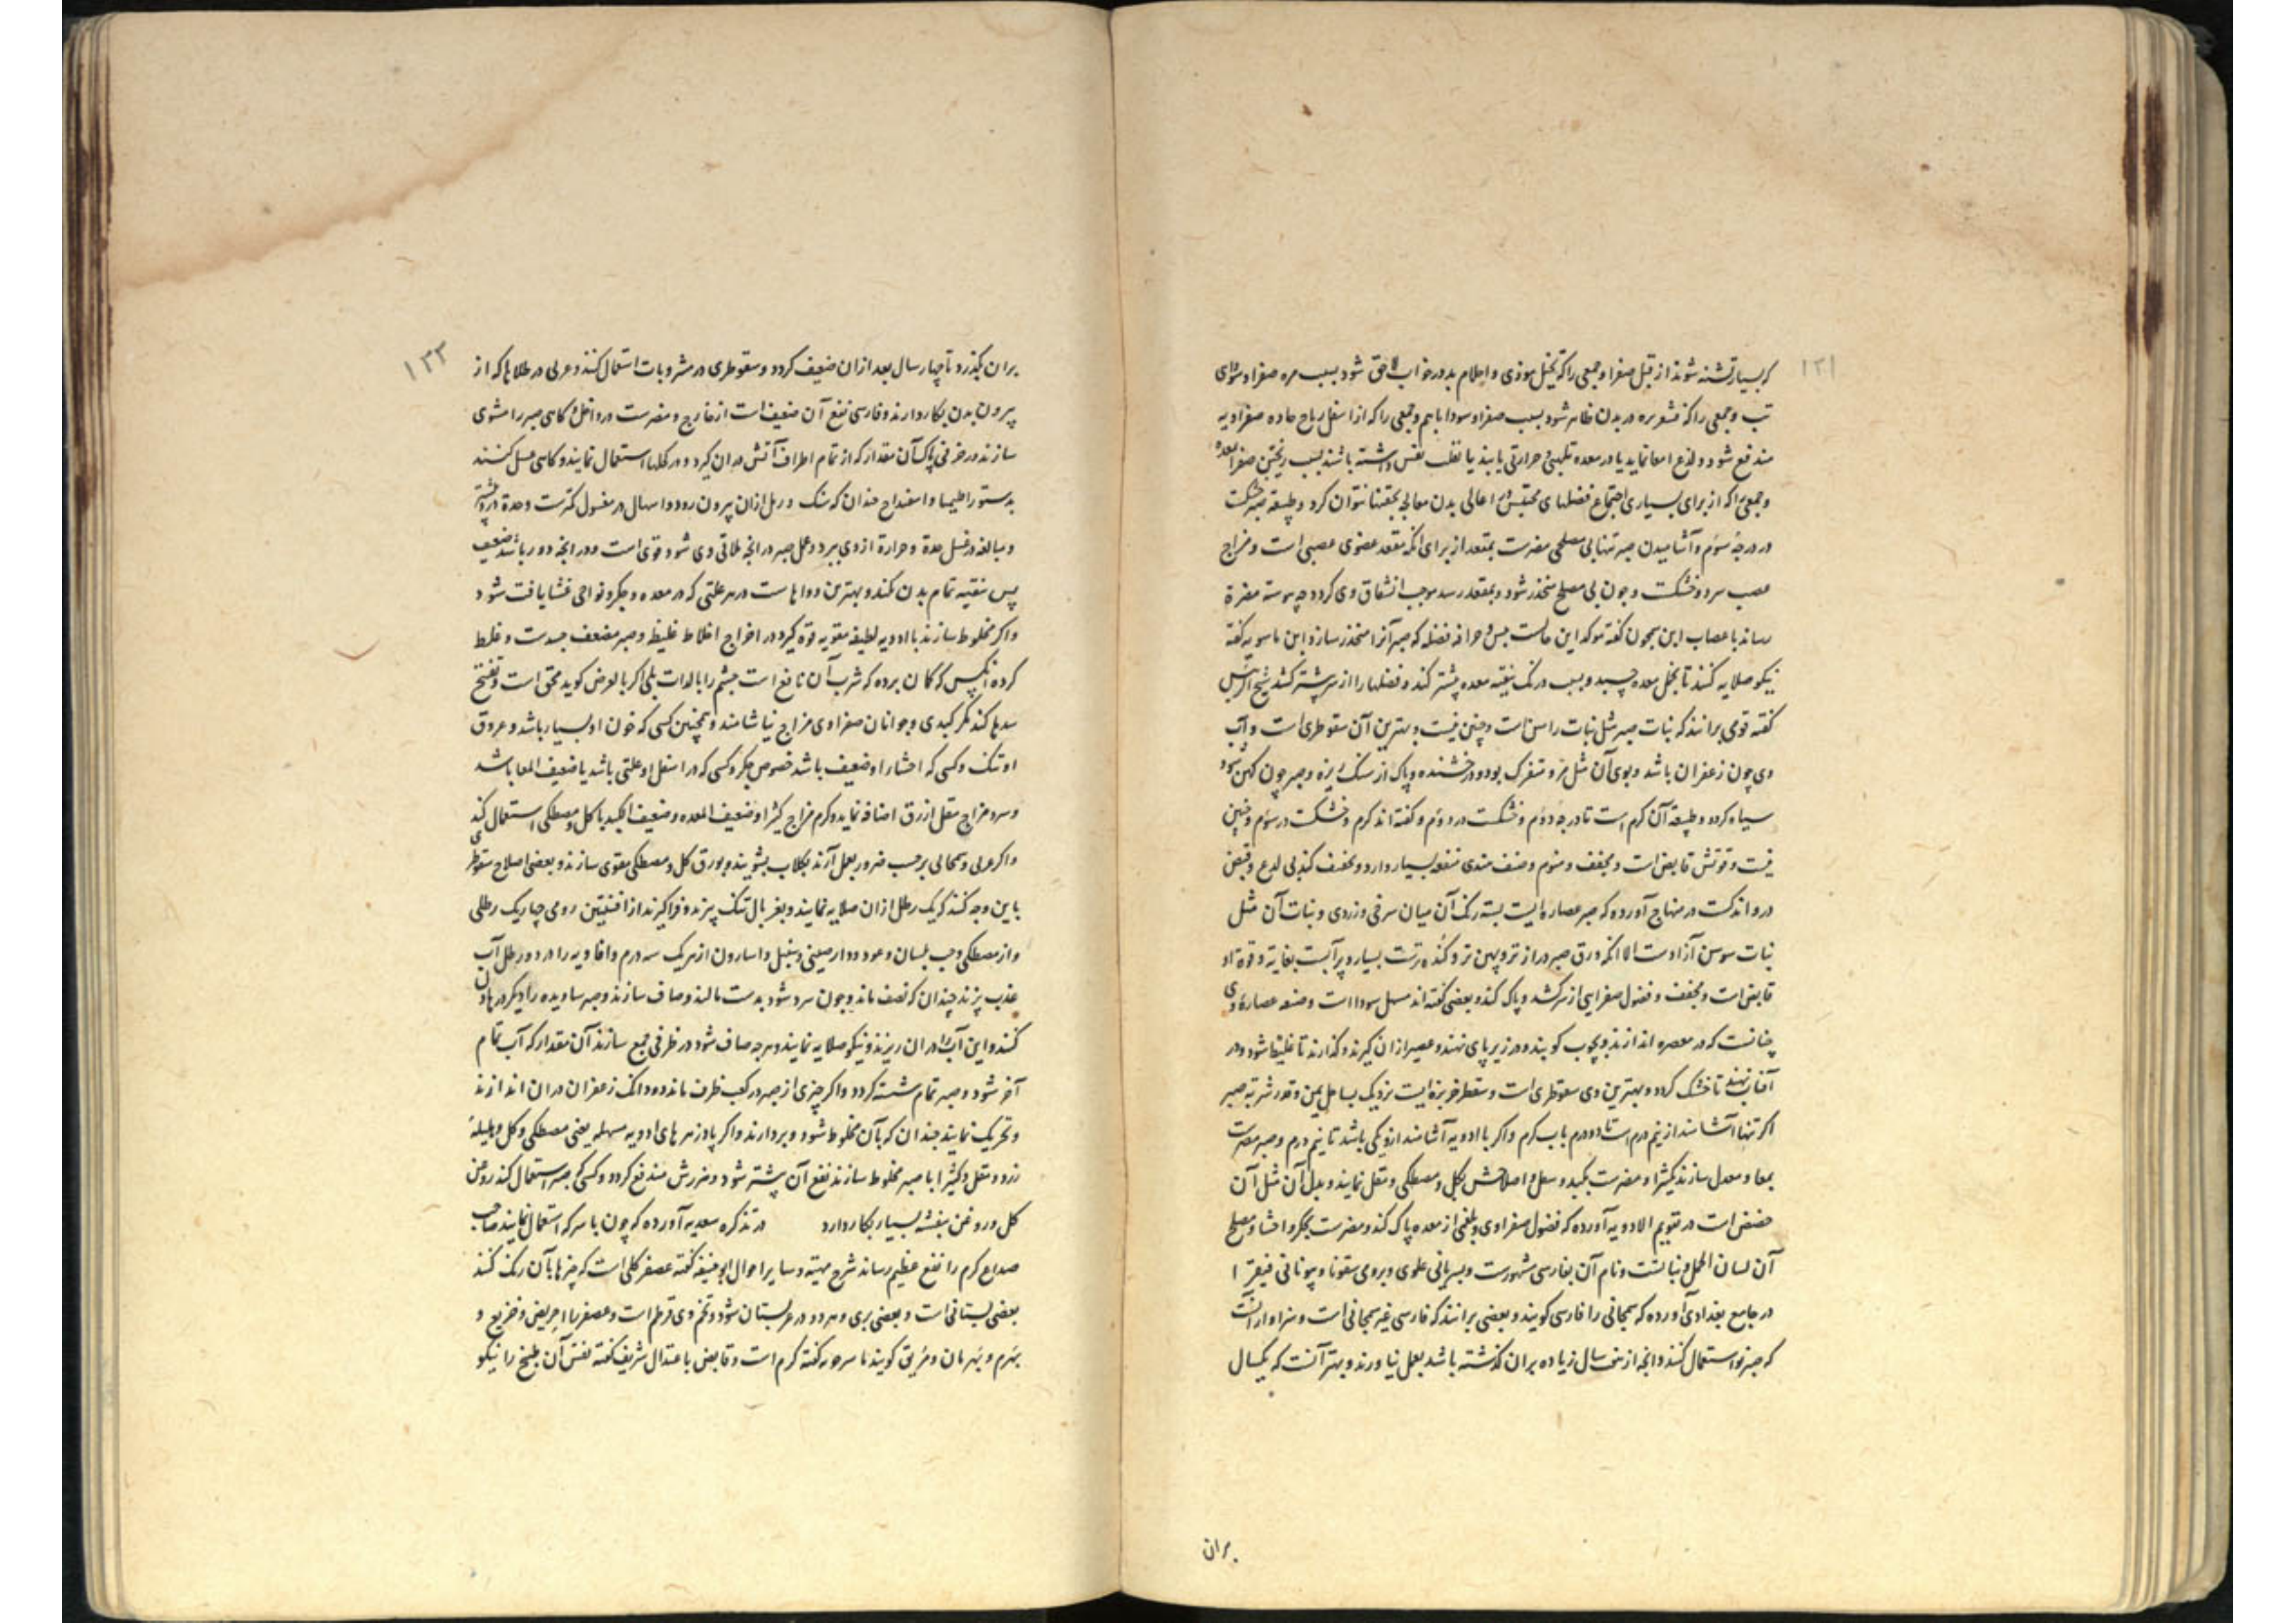 ۱۳۱
که بسیار تشنه شوند از قبل صفرا و جمعی را که تخیل موذی و احلام بد در خواب لاحق شود بسبب مره صفرا و سوای
تب و جمعی را که قشعریره در بدن ظاهر شود بسبب صفرا و سودا باهم و جمعی را که از اسفل ریاح حاده صفراویه
مندفع شود و لذع امعا نماید یا در معده تلهبی و حرارتی یابند یا تقلب نفس داشته باشند بسبب ریختن صفرا بمعده
و جمعی را که از برای بسیاری اجتماع فضلهای محتبس در اعالی بدن معالجه بحقنها نتوان کرد و طبیعة صبر خشکست
در درجهٔ سوم و آشامیدن صبر تنها بی مصلحی مضرت بمقعد از برای انکه مقعد عضوی عصبی است و مزاج
عصب سرد و خشکست و چون بی مصلح منحدر شود و بمقعد رسد موجب انشقاق وی کردد چه پیوسته مضرة
رساند باعصاب ابن سمجون کفته موکد این حالت یبس و حرافه فضله که صبر آنرا منحدر سازد ابن ماسویه کفته
نیکو صلایه کنند تا بخمل معده چسبد و بسبب درنک تنقیه معده پیشتر کند و فضلها را از سر پیشتر کشد شیخ الرئیس
کفته قومی برانند که نبات صبر مثل نبات راسن است و چنین نیست و بهترین آن سقوطری است و آب
وی چون زعفران باشد و بوی آن مثل مر و متفرک بود و درخشنده و پاک از سنک ریزه و صبر چون کهن شود
سیاه کردد و طبیعة آن کرم است تا درجهٔ دوم و خشکست در دوم و کفته‌اند کرم و خشکست در سوم و چنین
نیست و قوتش قابض است و مجفف و منوم و صنف هندی منفعه بسیار دارد و مجفف کند بی لدع و قبض
درو اندکست در منهاج آورده که صبر عصاره‌ایست بسته رنک آن میان سرخی و زردی و نبات آن مثل
نبات سوسن آزادست الا انکه ورق صبر دراز تر و پهن تر و کنده ترست بسیار و پرآبست بغایة و قوة او
قابض است و مجفف و فضول صفرایی از سر کشد و پاک کند و بعضی کفته‌اند مسهل سودا است و صنعه عصارهٔ وی
چنانست که در معصره اندازند و بچوب کوبند و در زیر پای نهند و عصیر ازان کیرند و کذارند تا غلیظ شود و در
آفتاب نهند تا خشک کردد و بهترین وی سقوطری است و سقطر جزیره‌ایست نزدیک بساحل یمن و قدر شربة صبر
اکر تنها آشامند از نیم درم است تا دو درم باب کرم و اکر با ادویه آشامند از دانکی باشد تا نیم درم و صبر مضرت
بمعا و معدل سازند کثیرا و مضرت بکبد و سفل و اصلاحش بکل و مصطکی و مقل نمایند و بدل آن مثل آن
حضض است در تقویم الادویه آورده که فضول صفراوی و بلغمی از معده پاک کند و مضرت بجکر و احشا و مصلح
آن لسان الحمل و نباتست و نام آن بفارسی شهورست و بسریانی علوی و برومی سقونا و بیونانی فیقرا
در جامع بغدادی آورده که سمجانی را فارسی کویند و بعضی برانند که فارسی غیر سمجانی است و سزاوار آنست
که صبر نو استعمال کنند و انچه از سال زیاده بران کذشته باشد بعمل نیاورند و بهتر آنست که یکسال
بران
۱۳۲
بران بکذرد تا چهار سال بعد ازان ضعیف کردد و سقوطری در مشروبات استعمال کنند و عربی در طلاها که از
بیرون بدن بکار دارند و فارسی نفع آن ضعیف است از خارج و مضرت در داخل و کاهی صبر را مشوی
سازند در خزفی پاک آن مقدار که از تمام اطراف آتش دران کیرد و در کحلها استعمال نمایند و کاهی غسل کنند
بدستور اقلیمیا و اسفیداج چندان که سنک و رمل ازان بیرون رود و اسهال در مغسول کمترست وحدة درو
و مبالغه در غسل حدة و حرارة از وی ببرد و عمل صبر در انچه ملاقی وی شود قوی است و در انچه دور باشد ضعیف
پس تنقیه تمام بدن نکند و بهترین دواهاست در هر علتی که در معده و جکر و نواحی غشا یافت شود
واکر مخلوط سازند با ادویه لطیفه مقویه قوة کیرد در اخراج اخلاط غلیظ و صبر مضعف جسدست و غلط
کرده انکس که کمان برده که شرب آن نافع است چشم را بالذات بلی اکر بالعرض کوید محق است و تفتیح
سدها کند مکر کبدی و جوانان صفراوی مزاج نیاشامند و همچنین کسی که خون او بسیار باشد و عروق
او تنک و کسی که احشاء او ضعیف باشد خصوص جکر و کسی که در اسفل او علتی باشد یا ضعیف المعا باشد
و سرد مزاج مقل ازرق اضافه نماید و کرم مزاج کثیرا و ضعیف المعده و ضعیف الکبد با کل و مصطکی استعمال کند
واکر عربی و سمجانی بر حسب ضرور بعمل آرند بکلاب بشویند و بورق کل و مصطکی مقوی سازند و بعضی اصلاح سقوطری
باین وجه کنند که یک رطل ازان صلایه نمایند و بغربال تنک بیزند و فراکیرند از افسنتین رومی چهاریک رطلی
و از مصطکی و حب بلسان و عود و دارصینی و سنبل و اسارون از هر یک سه درم و افاویه را در دو رطل آب
عذب پزند چندان که نصف ماند و چون سرد شود بدست مالند و صاف سازند و صبر ساویده را دیکر در هاون
کنند و این آب را دران ریزند و نیکو صلایه نمایند و هرچه صاف شود در ظرفی جمع سازند آن مقدار که آب تمام
آخر شود و صبر تمام شسته کردد و اکر چیزی از صبر در کعب ظرف ماند دو دانک زعفران دران اندازند
و تحریک نمایند چندان که بآن مخلوط شود و بردارند و اکر پادزهرهای ادویه مسهله یعنی مصطکی و کل و هلیلهٔ
زرد و مقل و کثیرا با صبر مخلوط سازند نفع آن پیشتر شود و ضررش مندفع کردد و کسی که صبر استعمال کند روغن
کل و روغن بنفشه بسیار بکار دارد در تذکره سعدیه آورده که چون با سرکه استعمال نمایند صاحب
صداع کرم را نفع عظیم رساند شرح مهیته و سایر احوال ابوحنیفه کفته عصفر کلی است که چیزها بآن رنک کنند
بعضی بستانی است و بعضی بری و هر دو در عربستان شود و تخم وی قرطم است و عصفر را احریض و خریع و
بهرم و بهرمان و مریق کویند ماسرجویه کفته کرم است و قابض باعتدال شریف کفته نفس آن طبیخ را نیکو